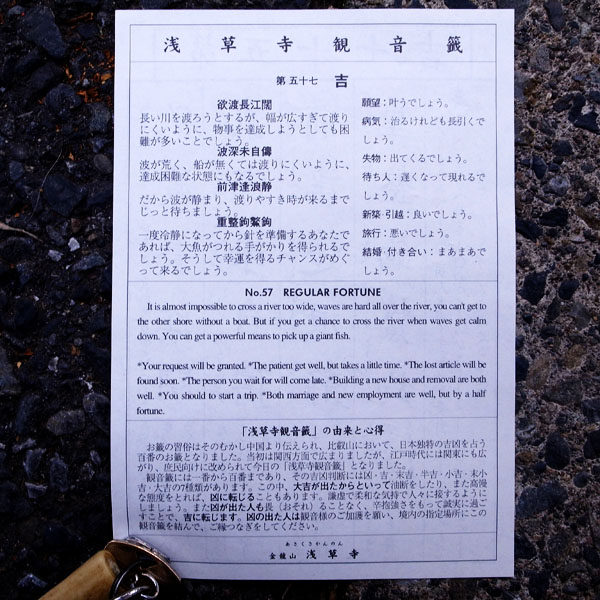 浅草寺観音籤
第五十七 吉
欲渡長江闊
長い川を渡ろうとするが、幅が広すぎて渡り
にくいように、物事を達成しようとしても困
難が多いことでしょう。
波深未自儔
波が荒く、船が無くては渡りにくいように、
達成困難な状態にもなるでしょう。
前津逢浪静
だから波が静まり、渡りやすき時が来るまで
じっと待ちましょう。
重整鉤鰲鉤
一度冷静になってから針を準備するあなたで
あれば、大魚がつれる手がかりを得られるで
しょう。そうして幸運を得るチャンスがめぐ
って来るでしょう。
願望：叶うでしょう。
病気：治るけれども長引くで
しょう。
失物：出てくるでしょう。
待ち人：遅くなって現れるで
しょう。
新築・引越：良いでしょう。
旅行：悪いでしょう。
結婚・付き合い：まあまあで
しょう。
No.57 REGULAR FORTUNE
It is almost impossible to cross a river too wide, waves are hard all over the river, you can't get to
the other shore without a boat. But if you get a chance to cross the river when waves get calm
down. You can get a powerful means to pick up a giant fish.
*Your request will be granted. *The patient get well, but takes a little time. *The lost article will be
found soon. *The person you wait for will come late. *Building a new house and removal are both
well. *You should to start a trip. *Both marriage and new employment are well, but by a half
fortune.
「浅草寺観音籤」の由来と心得
お籤の習俗はそのむかし中国より伝えられ、比叡山において、日本独特の吉凶を占う
百番のお籤となりました。当初は関西方面で広まりましたが、江戸時代には関東にも広
がり、庶民向けに改められて今日の「浅草寺観音籤」となりました。
観音籤には一番から百番まであり、その吉凶判断には凶・吉・末吉・半吉・小吉・末小
吉・大吉の7種類があります。この中、大吉が出たからといって油断をしたり、また高慢
な態度をとれば、凶に転じることもあります。謙虚で柔和な気持で人々に接するようにし
ましょう。また凶が出た人も畏（おそれ）ることなく、辛抱強さをもって誠実に過ご
すことで、吉に転じます。凶の出た人は観音様のご加護を願い、境内の指定場所にこの
観音籤を結んで、ご縁つなぎをしてください。
あさくさかんのん
金龍山 浅草寺